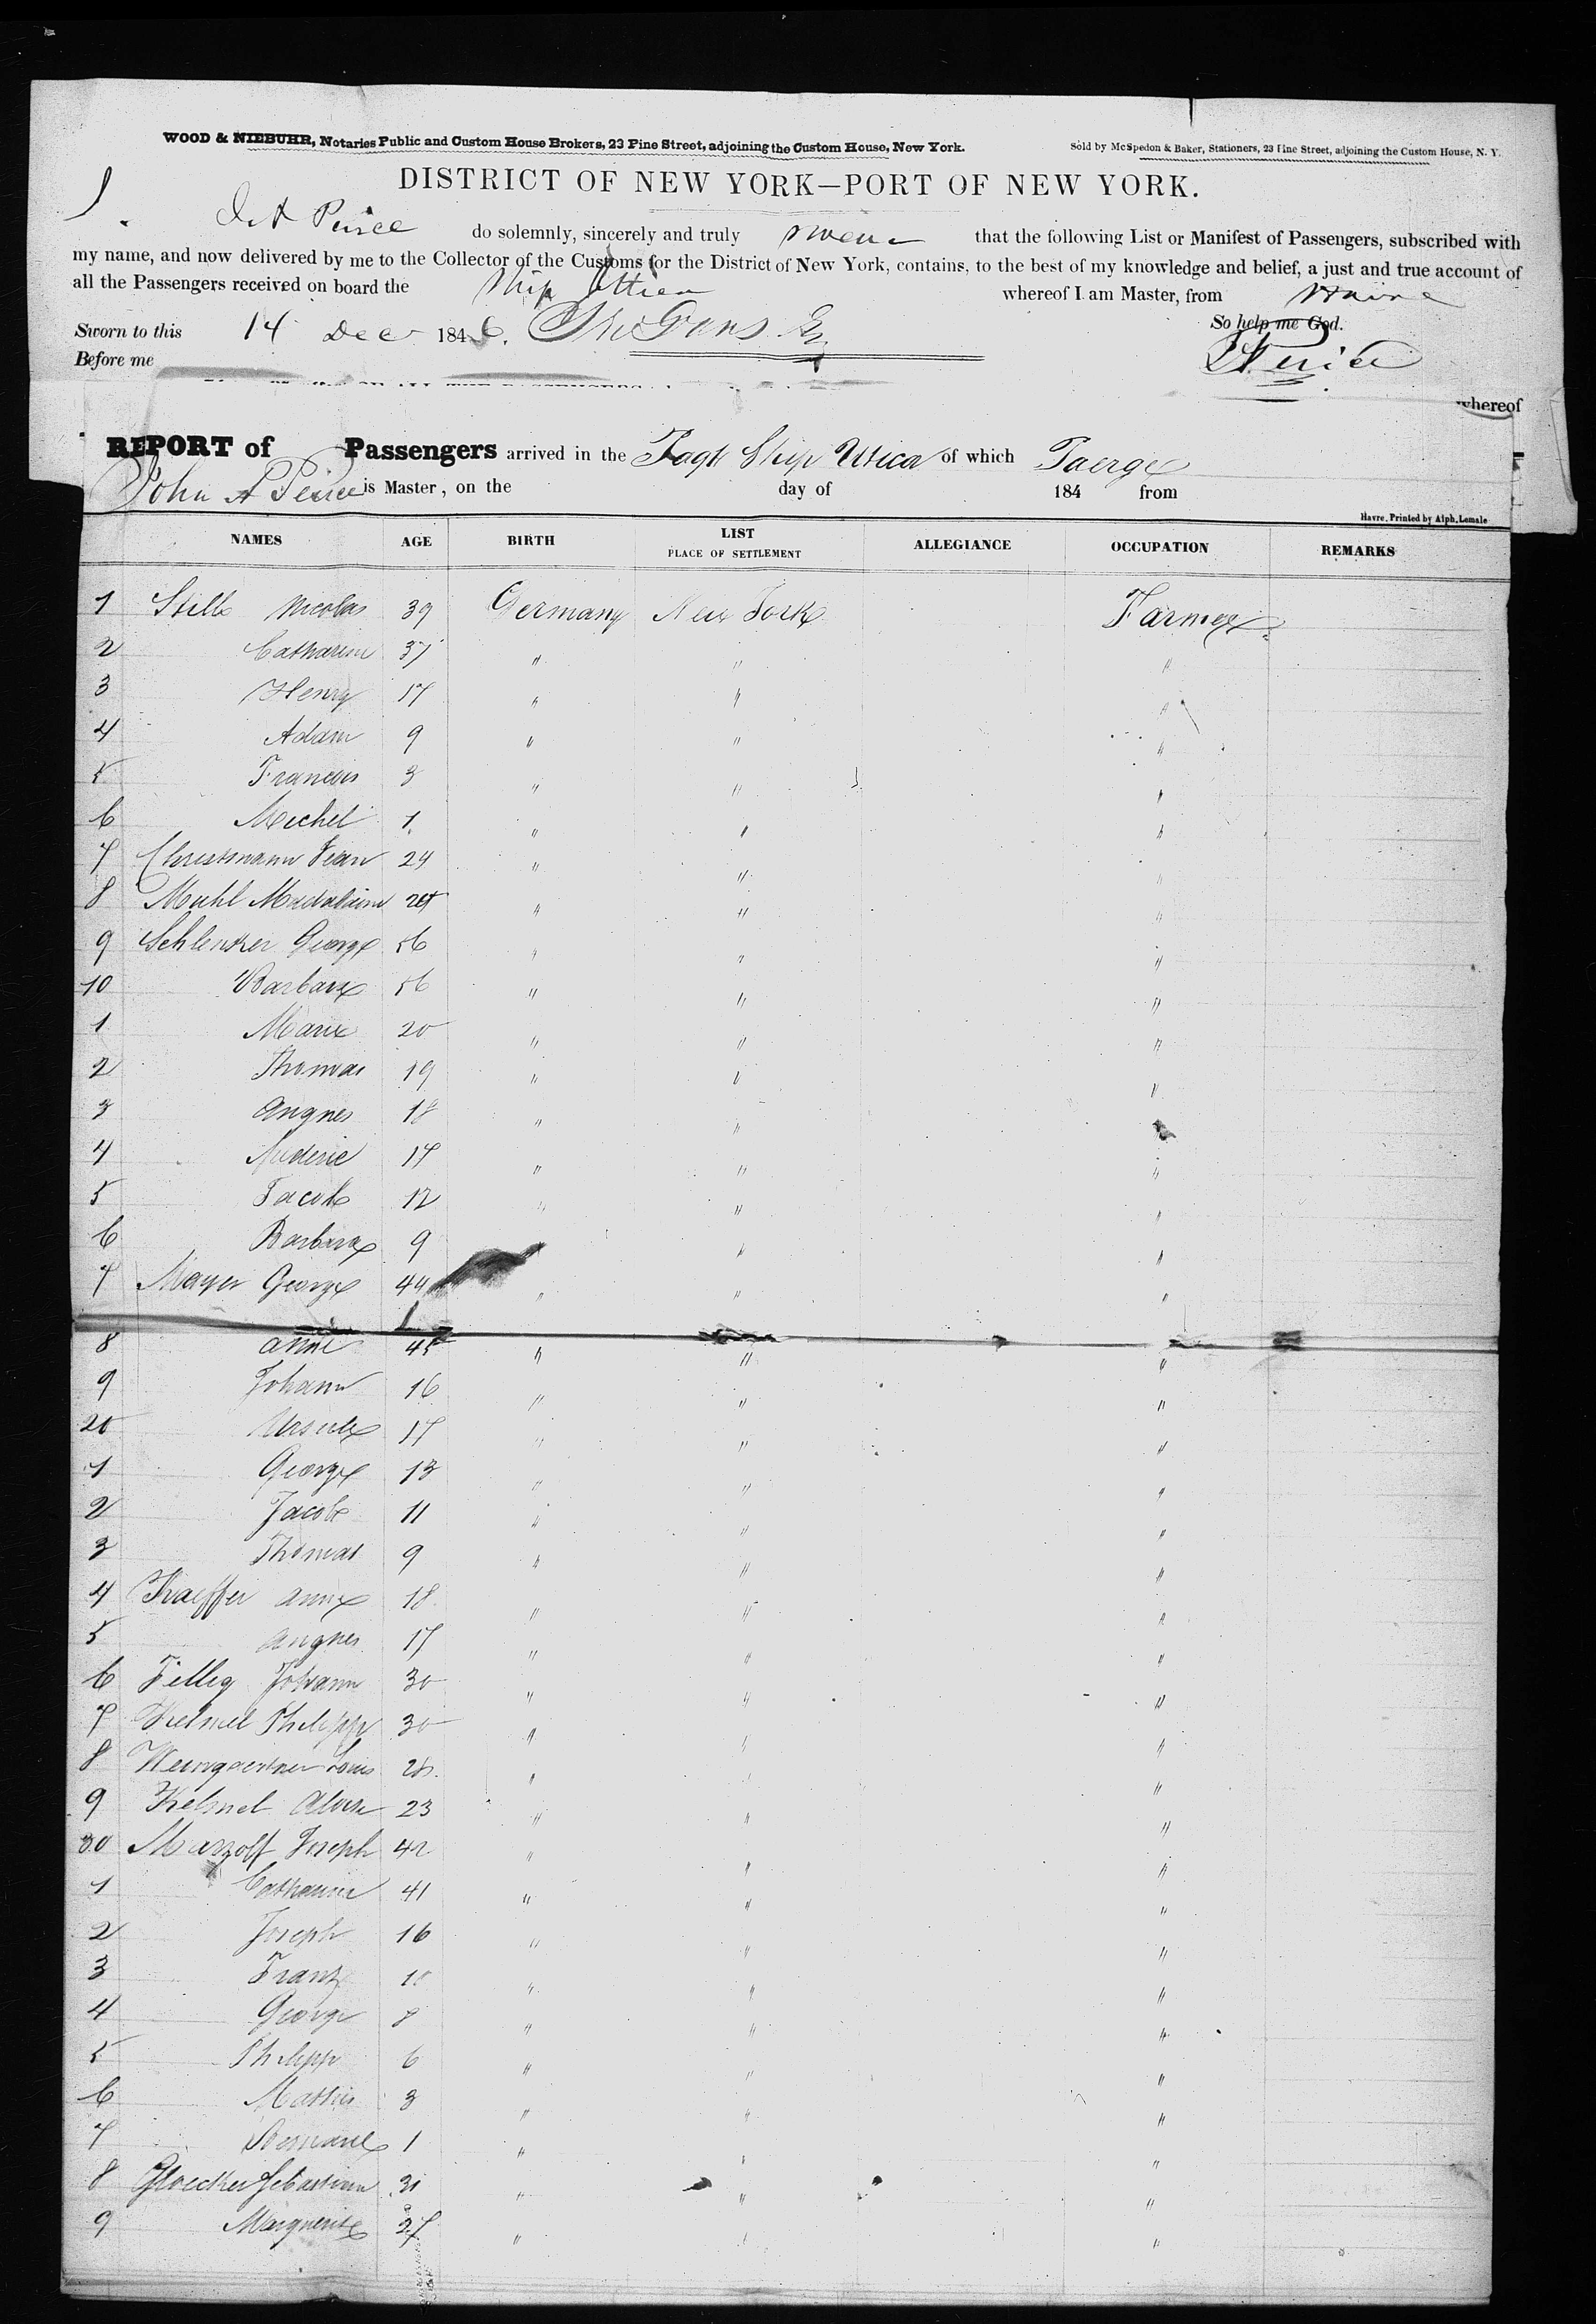 WOOD & NIEBUHR, Notaries Public and Custom House Brokers, 23 Pine Street, adjoining the Custom House, New York.
Sold by McSpedon & Baker, Stationers, 23 Pine Street, adjoining the Custom House, N. Y.
DISTRICT OF NEW YORK—PORT OF NEW YORK.
I. J. A Peirce do solemnly, sincerely and truly swear that the following List or Manifest of Passengers, subscribed with
my name, and now delivered by me to the Collector of the Customs for the District of New York, contains, to the best of my knowledge and belief, a just and true account of
all the Passengers received on board the Ship Utica whereof I am Master, from Havre
So help me God.
Sworn to this 14 Dec 1846.
Before me
whereof
REPORT of Passengers arrived in the Ship Utica of which
John A Peirce is Master, on the day of 184 from
Havre, Printed by Alph. Lemale
NAMES AGE BIRTH LIST PLACE OF SETTLEMENT ALLEGIANCE OCCUPATION REMARKS
1 Nicolas 39 Germany New York Farmer
2 Catharine 37 " " "
3 Henry 17 " " "
4 Adam 9 " " "
5 Francois 3 " " "
6 Michel 1 " " "
7 Christmann Jean 24 " " "
8 Muhl Madalaine " " "
9 Schlenker George 56 " " "
10 Barbara 56 " " "
1 Marie 20 " " "
2 Thomas 19 " " "
3 Angnes 18 " "
4 17 " " "
5 Jacob 12 " " "
6 Barbara 9 " "
7 Mayer George 44 " " "
8 Anne 45 " " "
9 Johann 16 " " "
20 Ursula 17 " " "
1 George 13 " " "
2 Jacob 11 " " "
3 Thomas 9 " " "
4 Anne 18 " " "
5 Angnes 17 " " "
6 Johann 30 " " "
7 Philipp 30 " " "
8 Weingaertner Louis " " "
9 23 " " "
30 Marzolf Joseph 42 " " "
1 Catharine 41 " " "
2 Joseph 16 " " "
3 Frantz " " "
4 George 8 " " "
5 Philipp 6 " " "
6 3 " " "
7 1 " " "
8 Sebastian 31 " " "
9 Marguerite 27 " " "